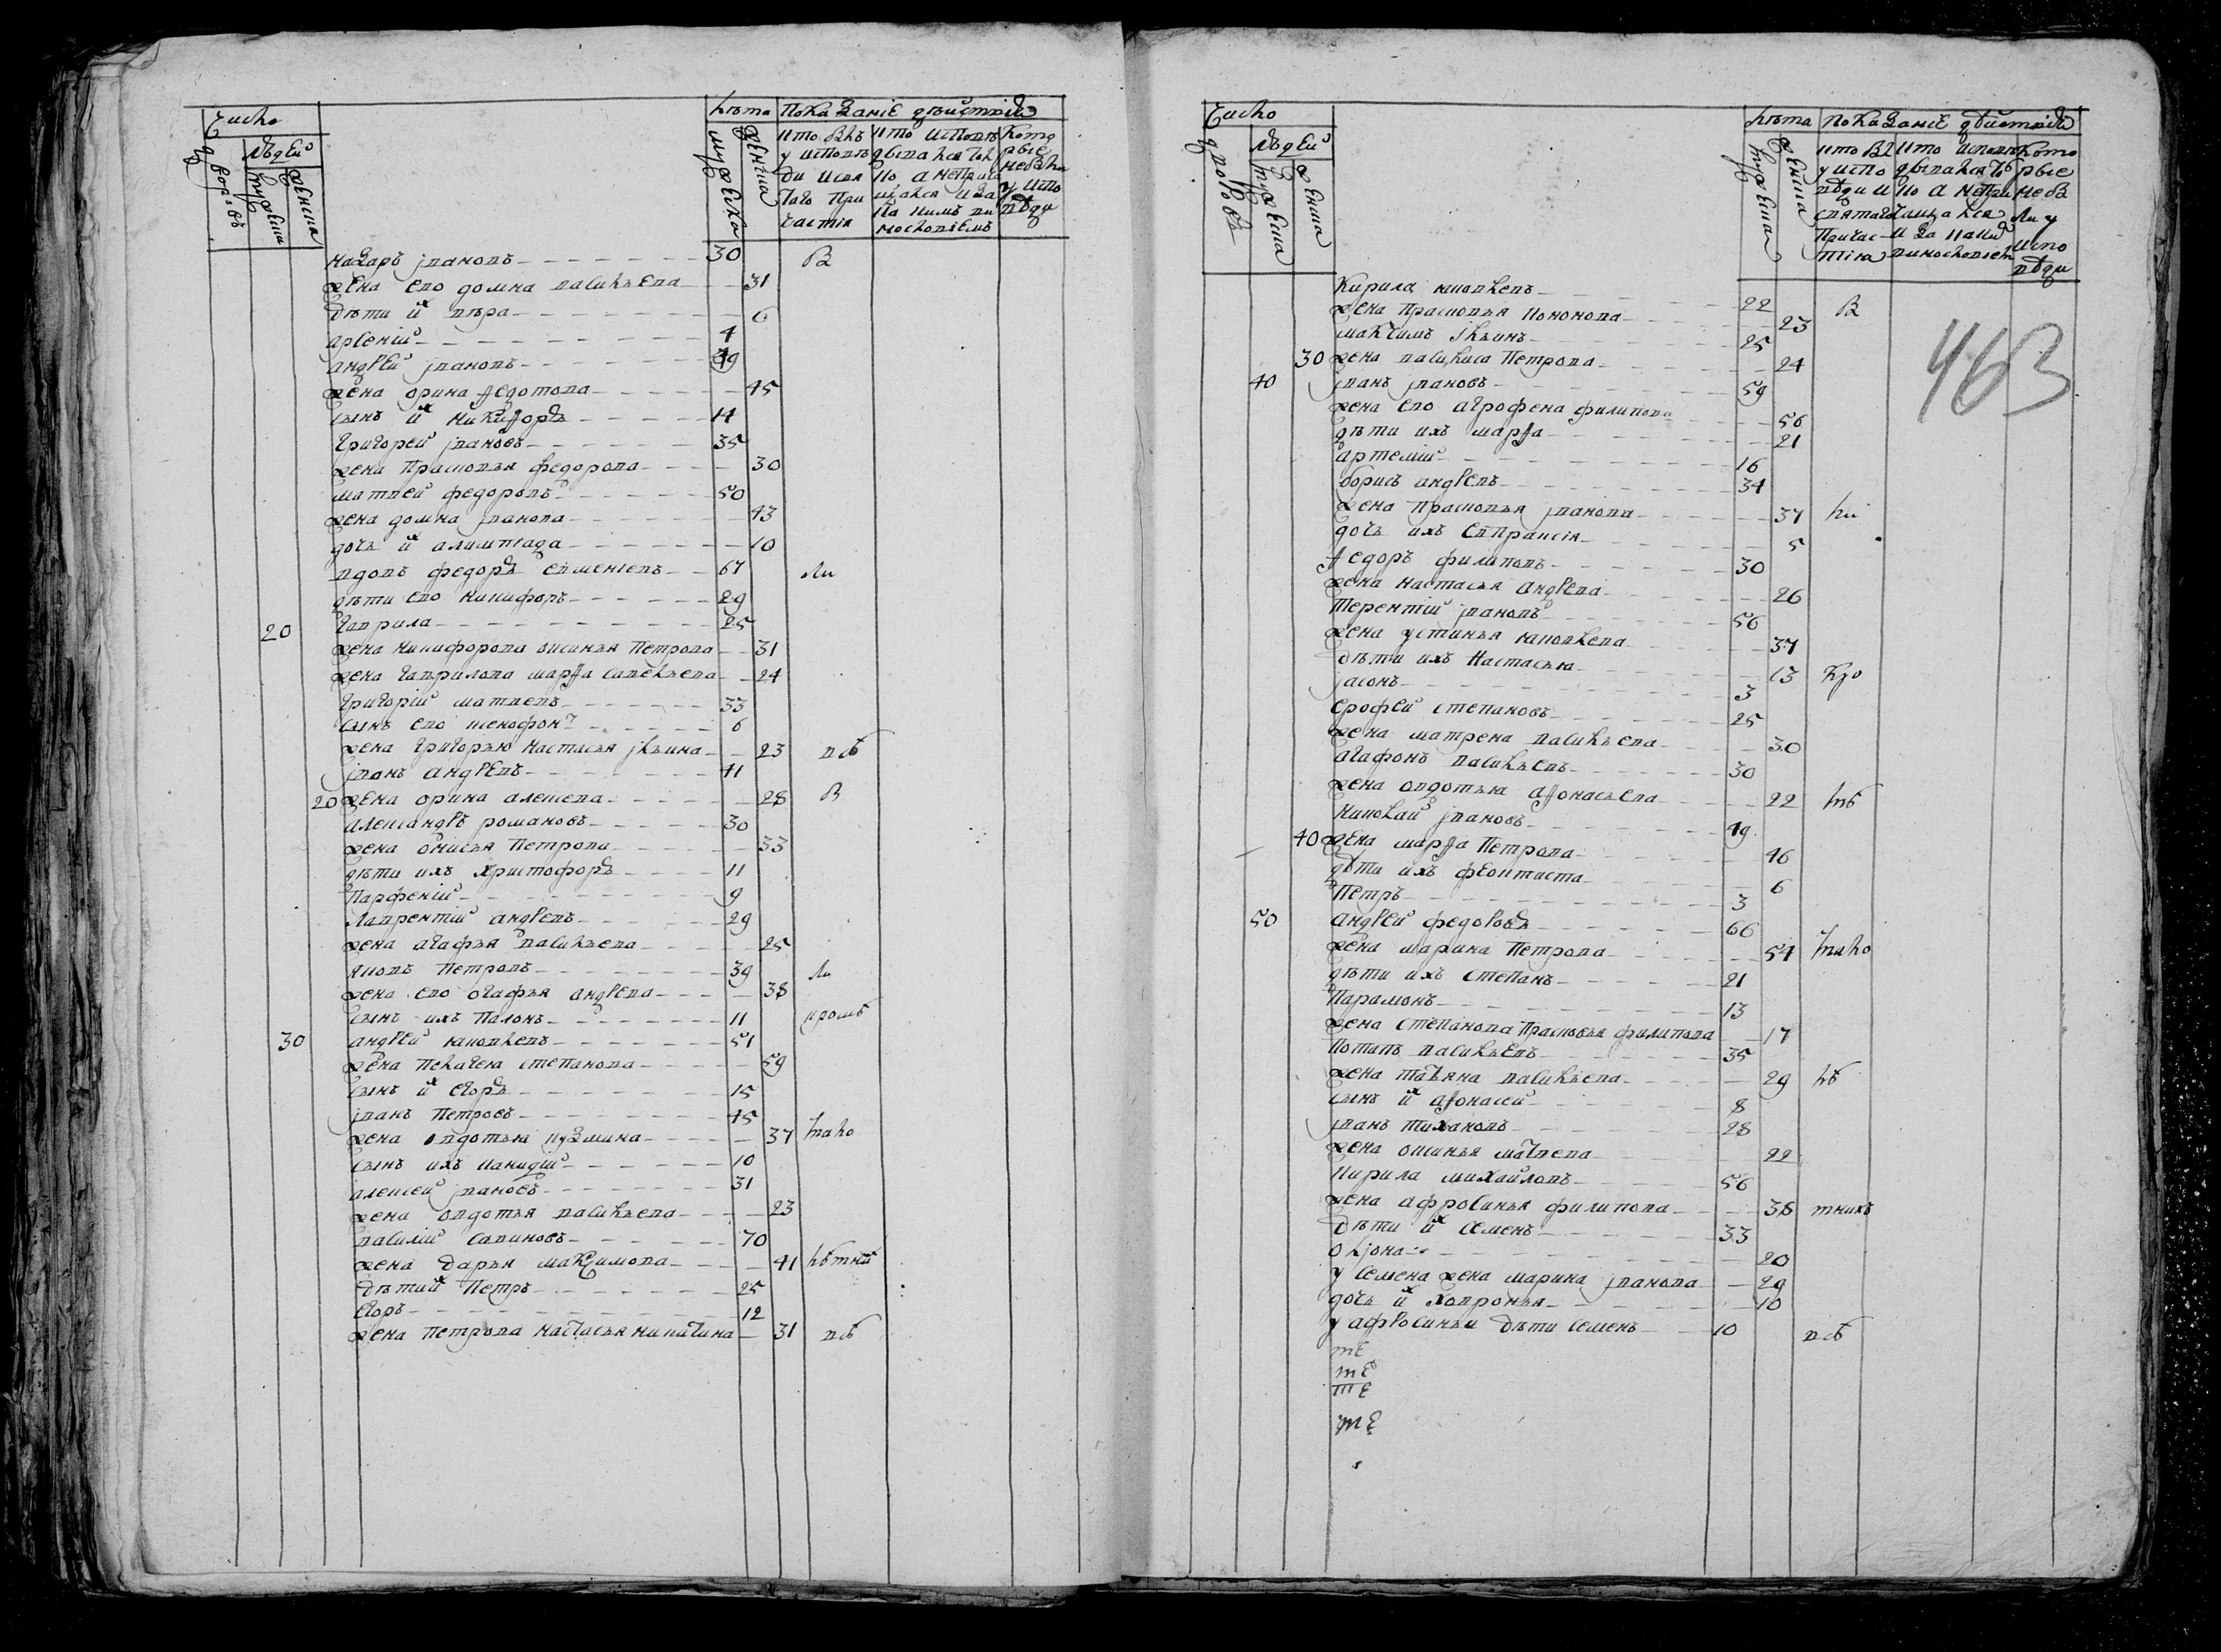 Число
дворовъ
людей
мужеска
женска
лѣта
мужеска
женска
Показаніе дѣйствія
кто былъ у исповѣди и святаго причастія
кто исповѣдывался а не причащался и за какимъ виннословіемъ
которые не были у исповѣди
назаръ ивановъ 30 В
жена ево домна васильева 31
дѣти их вѣра 6
арсеній 4
андрей ивановъ 49
жена орина федотова 45
сынъ их никифоръ 14
григорей ивановъ 35
жена прасковья федорова 30
матвей федоровъ 50
жена домна иванова 43
дочь их алимпіада 10
вдовъ федоръ 67 ли
дѣти ево никифоръ 29
20 гаврила 25
жена никифорова аксинья петрова 31
жена гаврилова марфа савельева 24
григорій матвевъ 33
сынъ ево ксенофонт 6
жена григорью настасья ильина 23 всѣ
иванъ андревъ 41
20 жена орина алексева 28 В
александръ романовъ 30
жена онисья петрова 33
дѣти ихъ христофоръ 11
парфеній 9
лаврентій андревъ 29
жена агафья васильева 25
яковъ петровъ 39 ли
жена ево огафья андрева 38
сынъ ихъ 11 кромѣ
30 андрей яковлевъ 51
жена пелагея степанова 59
сынъ их егоръ 15
иванъ петровъ 45
жена овдотья кузмина 37 мало
сынъ ихъ 10
алексей ивановъ 31
жена овдотья васильева 23
василій савиновъ 70
жена дарья максимова 41 лѣтних
дѣти их петръ 25
егоръ 12
жена петрова настасья никитина 31 всѣ
Число
дворовъ
людей
мужеска
женска
лѣта
мужеска
женска
Показаніе дѣйствія
кто былъ у исповѣди и святаго причастія
кто исповѣдывался а не причащался и за каким виннословіемъ
которые не были у исповѣди
463
Кирила яковлевъ 22 В
жена прасковья кононова 23
максимъ ильинъ 25
30 жена василиса петрова 24
40 иванъ ивановъ 59
жена ево агрофена филипова 56
дѣти ихъ марфа 21
артемій 16
борисъ андревъ 34
жена прасковья иванова 37 ли
дочь ихъ евпраксія 5
федоръ филиповъ 30
жена настасья андрева 26
терентій ивановъ 56
жена устинья яковлева 37
дѣти ихъ настасья 13 кро
іасонъ 3
ерофей степановъ 25
жена матрена васильева 30
агафонъ васильевъ 30
жена овдотья афонасьева 22 мѣ
николай ивановъ 49
40 жена марфа петрова 46
дѣти ихъ феоктиста 6
петръ 3
50 андрей федоровъ 66
жена марина петрова 54 мало
дѣти ихъ степанъ 21
парамонъ 13
жена степанова прасковья филипова 17
потапъ васильевъ 35
жена татьяна васильева 29 лѣ
сынъ их афонасей 8
иванъ тихановъ 28
жена оксинья матвева 22
кирила михайловъ 56
жена афросинья филипова 38 тнихъ
дѣти их семенъ 33
олiона 20
у семена жена марина иванова 29
дочь их хавронья 10
у афросиньи дѣти семенъ 10 всѣ
те
те
те
те